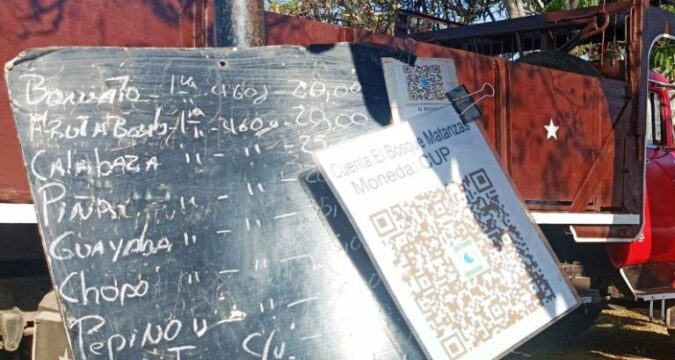 Boniato - 1ra - 460g - 20,00
Fruta Bomba 1ra - 460g - 20,00
Calabaza " - " -
Piña - " - " -
Guayaba " - " -
Chopo - " - " -
Pepino " - c/u
Cuenta El Bosque Matanzas
Moneda: CUP